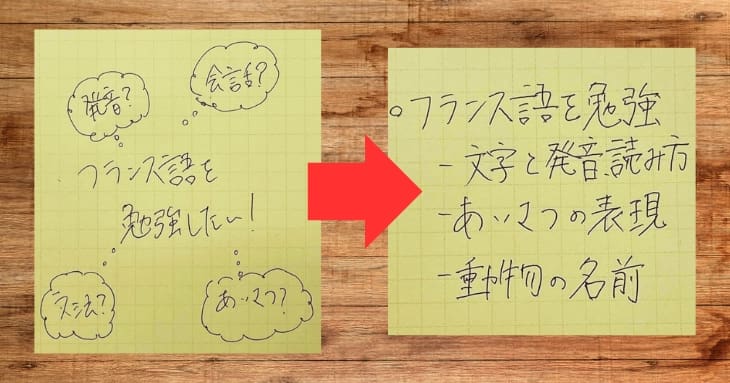 発音?
会話?
フランス語を
勉強したい!
文法?
あいさつ?
○フランス語を勉強
-文字と発音、読み方
-あいさつの表現
-動物の名前